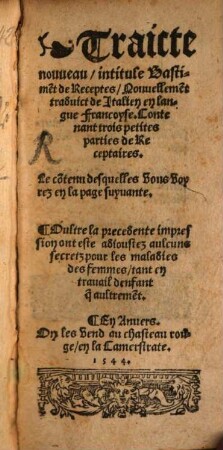 Traicte
nouveau/ intitule Basti-
mēt de Receptes/ Nouuellemēt
traduict de Italien en lan-
gue Francoyse. Conte
nant trois petites
parties de Re
ceptaires.
R
Le cōtenu desquelles vous voy
rez en la page suyuante.
¶Oultre la precedente impres
sion ont este adioustez aulcuns
secretz pour les maladies
des femmes/ tant en
trauail denfant
q̄ aultremēt.
¶En Anuers.
On les vend au chasteau rou-
ge/ en la Camerstrate.
1544.